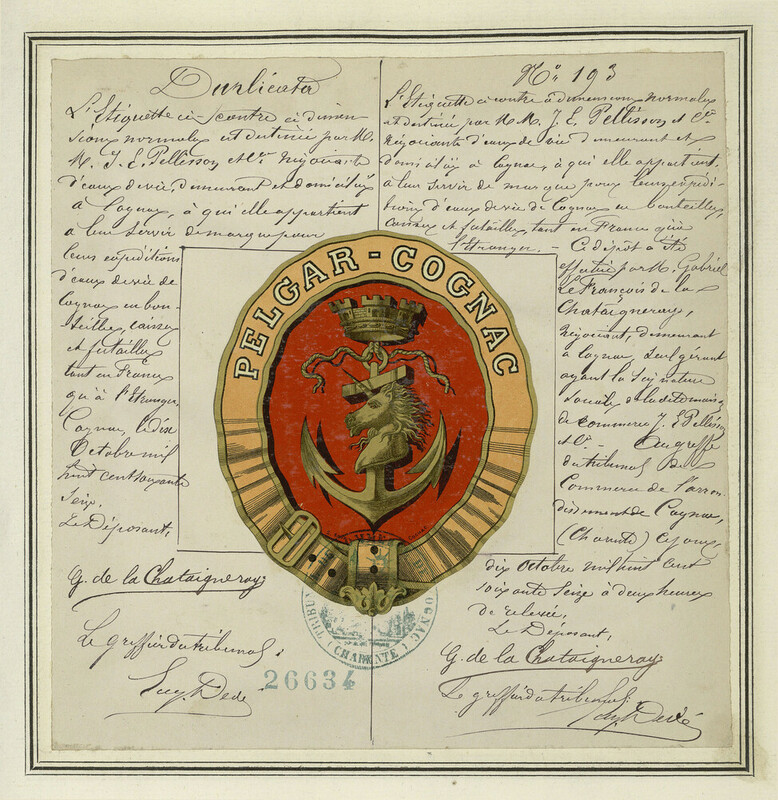 Duplicata
L'Etiquette ci-contre a dimen
sions normales est destinée par M.
M. J. E. Pellisson et Cie Négociants
d'eaux de vie, demeurant et domiciliés
à Cognac, à qui elle appartient
à leur servir de marque pour
leurs expéditions
d'eaux de vie de
Cognac en bou-
teilles, caisses
et futailles
tant en France
qu'à l'Etranger.
Cognac, le dix
Octobre mil
huit cent soixante
seize.
Le Déposant,
G. de la Chataigneray
Le greffier du tribunal
Dedé
No 193
L'Etiquette ci contre a dimensions normales
est destinée par M.M. J. E. Pellisson et Cie
Négociants d'eaux de vie demeurant et
domiciliés à Cognac, à qui elle appartient,
à leur servir de marque pour leurs expédi-
tions d'eaux de vie de Cognac en bouteilles,
caisses et futailles, tant en France qu'à
l'étranger. - Ce dépôt a été
effectué par M. Gabriel
Le François de la
Chataigneray,
Négociant, demeurant
à Cognac, seul gérant
ayant la signature
sociale de la dite maison
de commerce J. E. Pellisson
et Cie - Au greffe
du tribunal de
Commerce de l'arron-
dissement de Cognac,
(Charente) ce jour
dix Octobre mil huit cent
soixante seize à deux heures
de relevée.
Le Déposant,
G. de la Chataigneray
Le greffier du tribunal
Dedé
PELGAR - COGNAC
TRIBUN
COGNAC
(CHARENTE)
26634